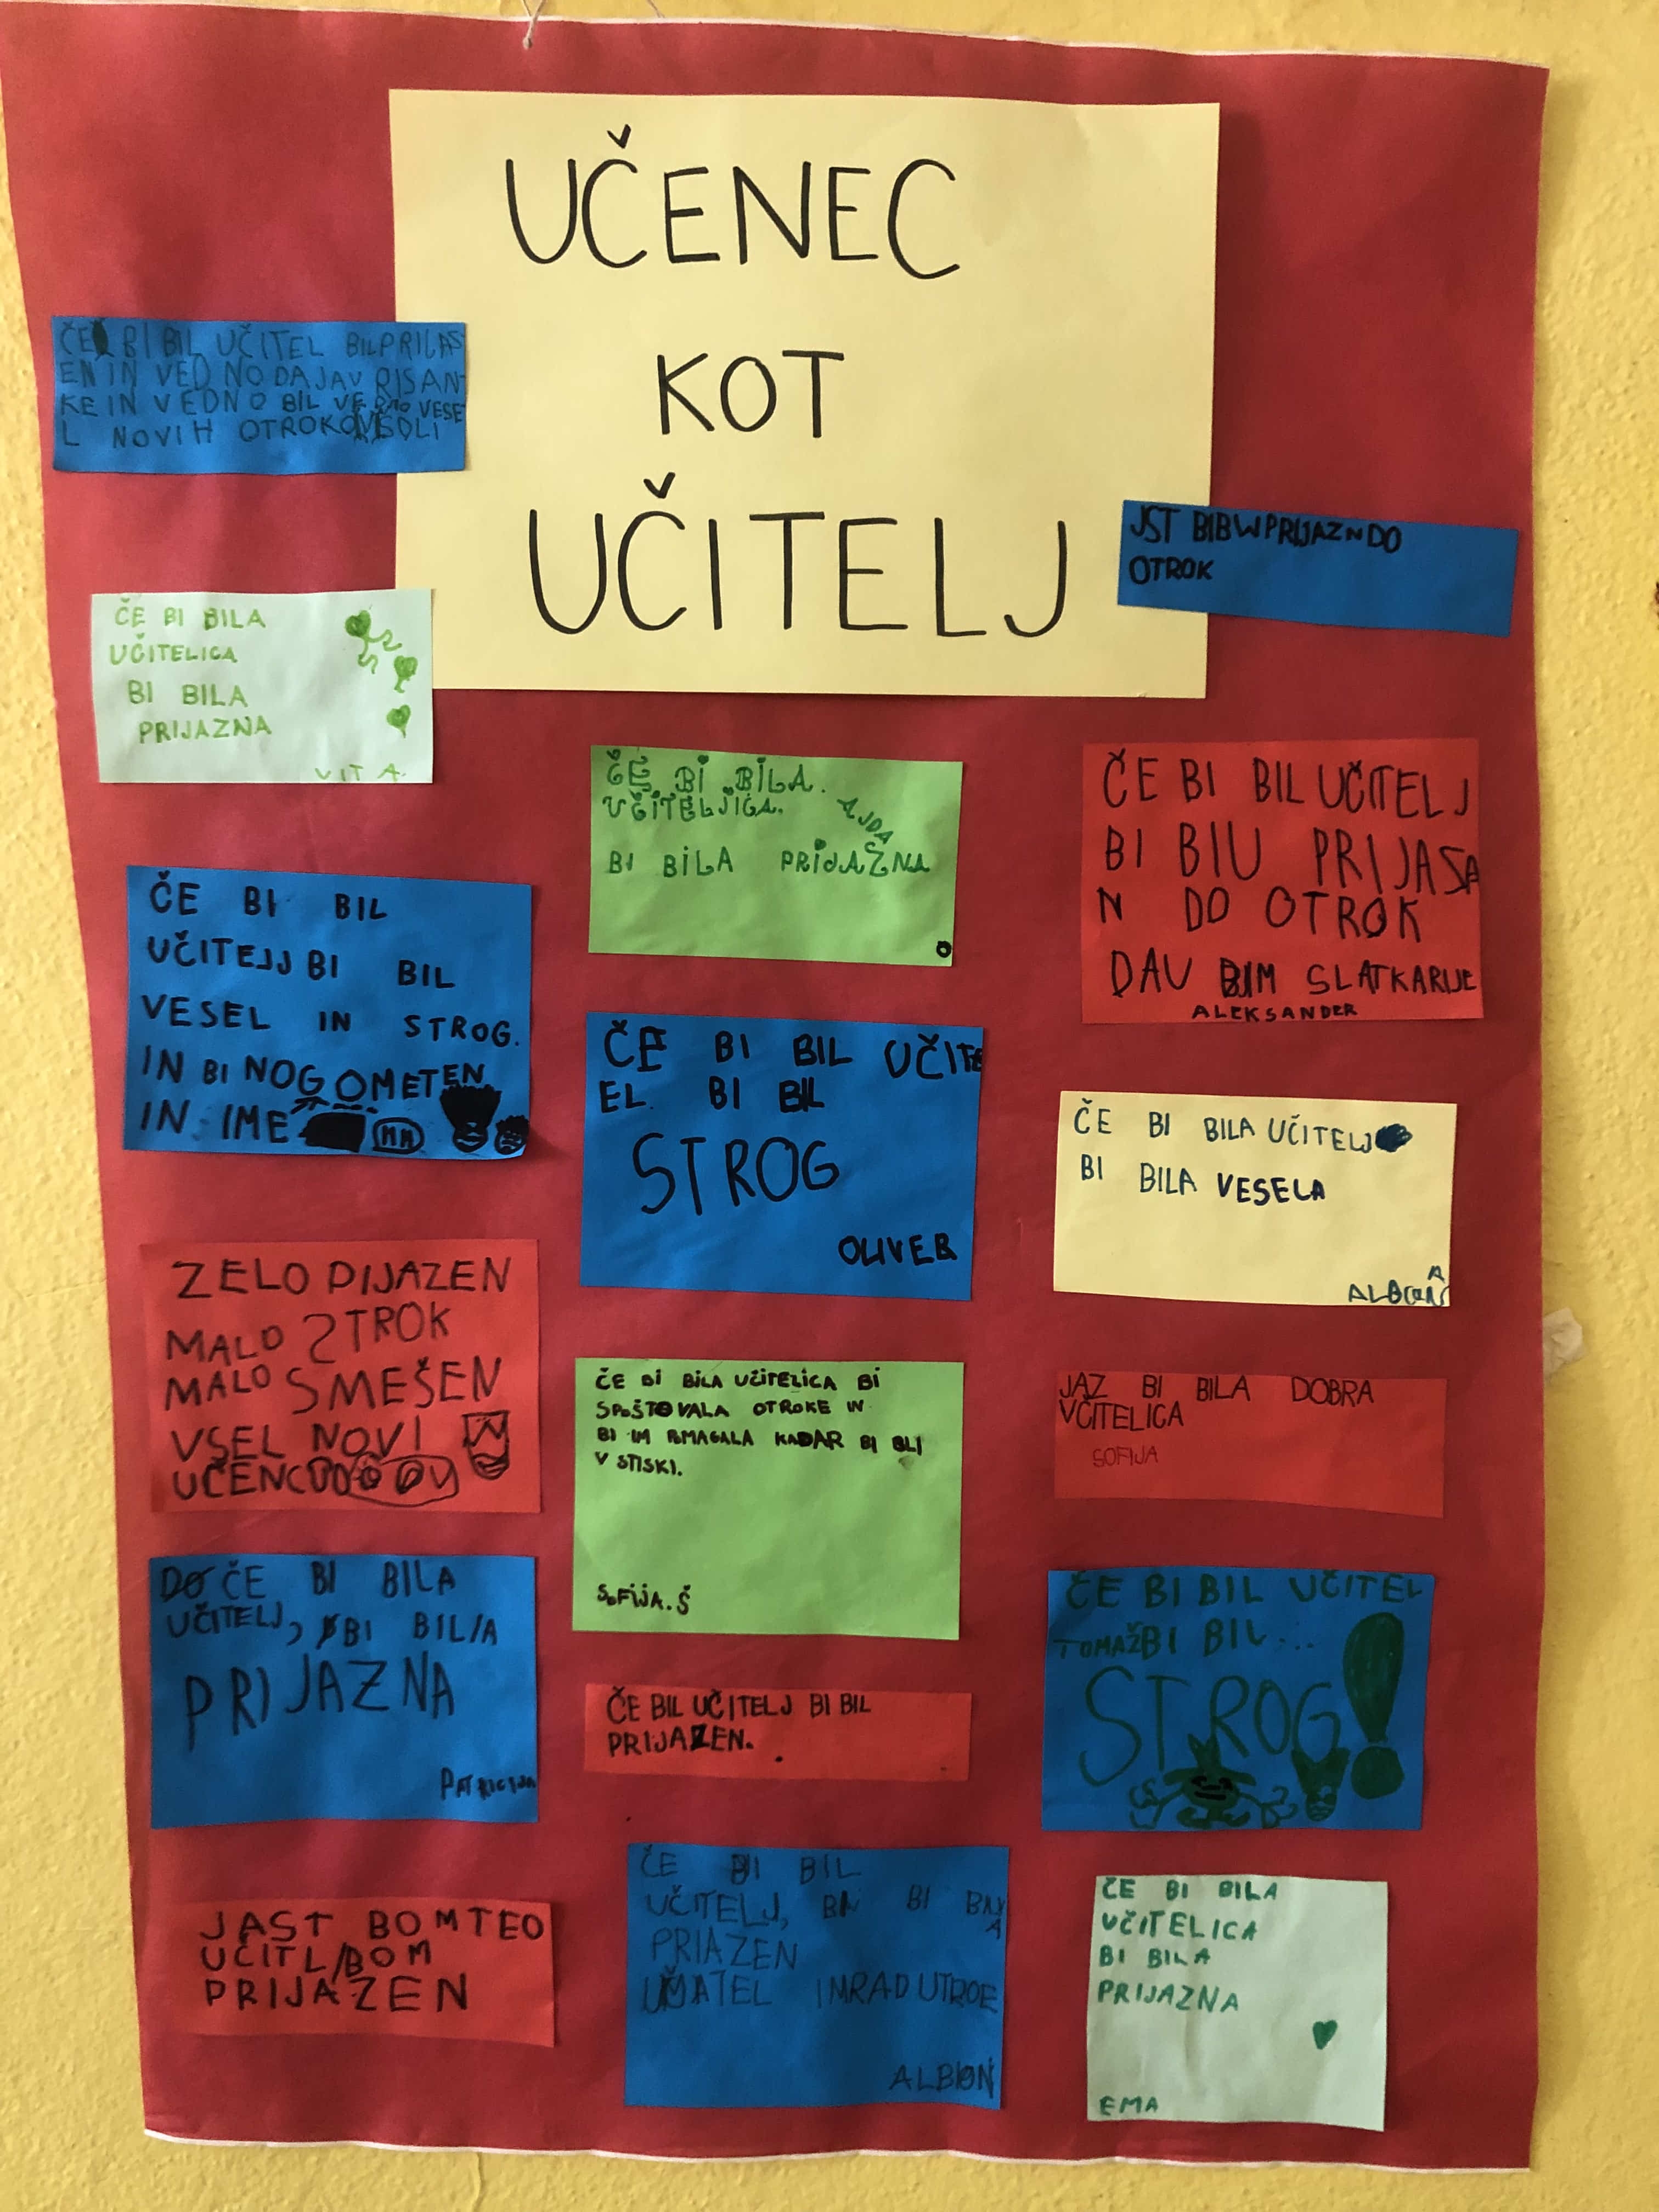 UČENEC
KOT
UČITELJ
ČE BI BIL UČITEL BIL PRIJAS
EN IN VEDNO DAJAV RISAN-
KE IN VEDNO BIL VESE
L NOVIH OTROKOV ŠOLI
JST BI BIL PRIJAZN DO
OTROK
ČE BI BILA
UČITELICA
BI BILA
PRIJAZNA
VITA
ČE BI BILA.
UČITELJICA.
AJDA
BI BILA PRIJAZNA
ČE BI BIL UČITELJ
BI BIU PRIJASA
N DO OTROK
DAV BIM SLATKARIJE
ALEKSANDER
ČE BI BIL
UČITEJJ BI BIL
VESEL IN STROG.
IN BI NOGOMETEN
IN IME
ČE BI BIL UČITE
EL BI BIL
STROG
OLIVER
ČE BI BILA UČITELJ
BI BILA VESELA
ZELO PIJAZEN
MALO STROK
MALO SMEŠEN
VSEL NOVI
ČE BI BILA UČITELICA BI
SPOŠTOVALA OTROKE IN
BI IM POMAGALA KADAR BI BLI
V STISKI.
SOFIJA.Š
JAZ BI BILA DOBRA
UČITELICA
SOFIJA
DO ČE BI BILA
UČITELJ, BI BIL/A
PRIJAZNA
PATRICIJA
ČE BIL UČITELJ BI BIL
PRIJAZEN.
ČE BI BIL UČITEL
TOMAŽ BI BIL...
STROG!
JAST BOM TEO
UČITL/BOM
PRIJAZEN
ČE BI BIL
UČITELJ, BI
PRIAZEN
IN RAD
ALBION
ČE BI BILA
UČITELICA
BI BILA
PRIJAZNA
EMA